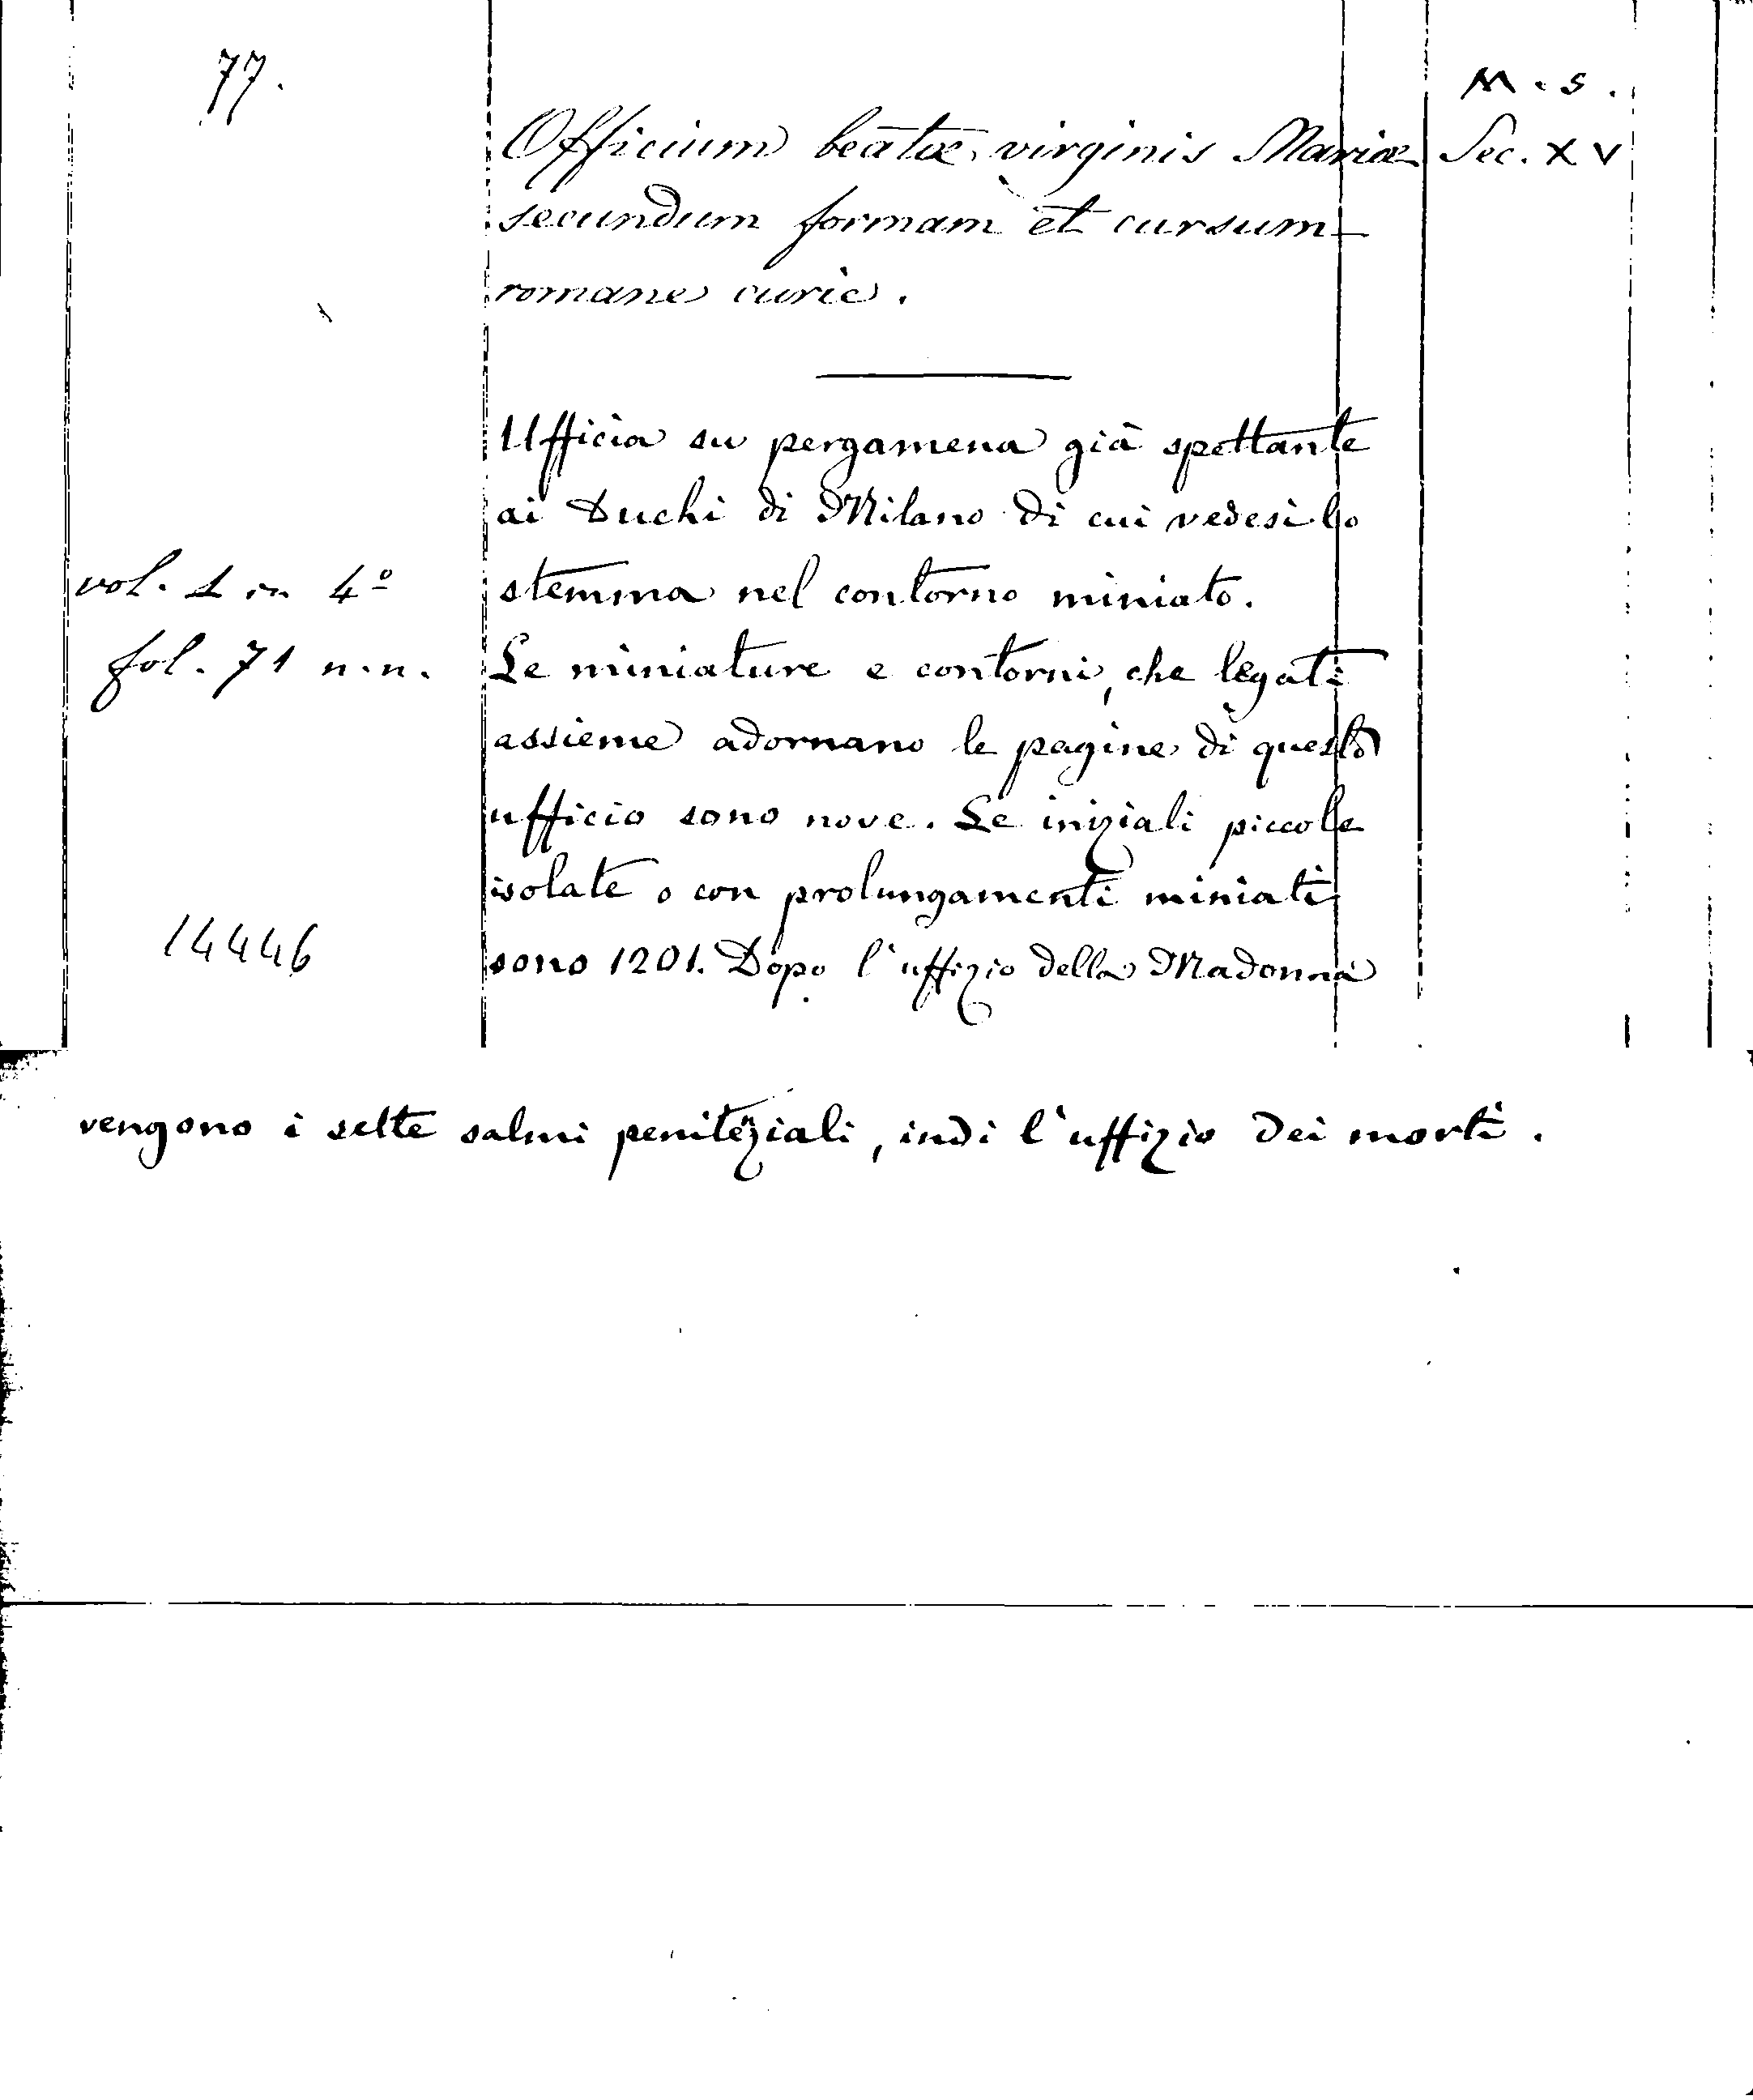 77.
M.S.
Officium beatæ virginis Mariæ Sec. XV
secundum formam et cursum
romane curie.
Ufficia su pergamena già spettante
ai Duchi di Milano di cui vedesi lo
vol. 1 in 4º stemma nel contorno miniato.
fol. 71 n.n. Le miniature e contorni, che legati
assieme adornano le pagine di questo
ufficio sono nove. Le iniziali piccole
isolate o con prolungamenti miniati
14446 sono 1201. Dopo l'uffizio della Madonna
vengono i sette salmi peniteziali, indi l'uffizio dei morti.